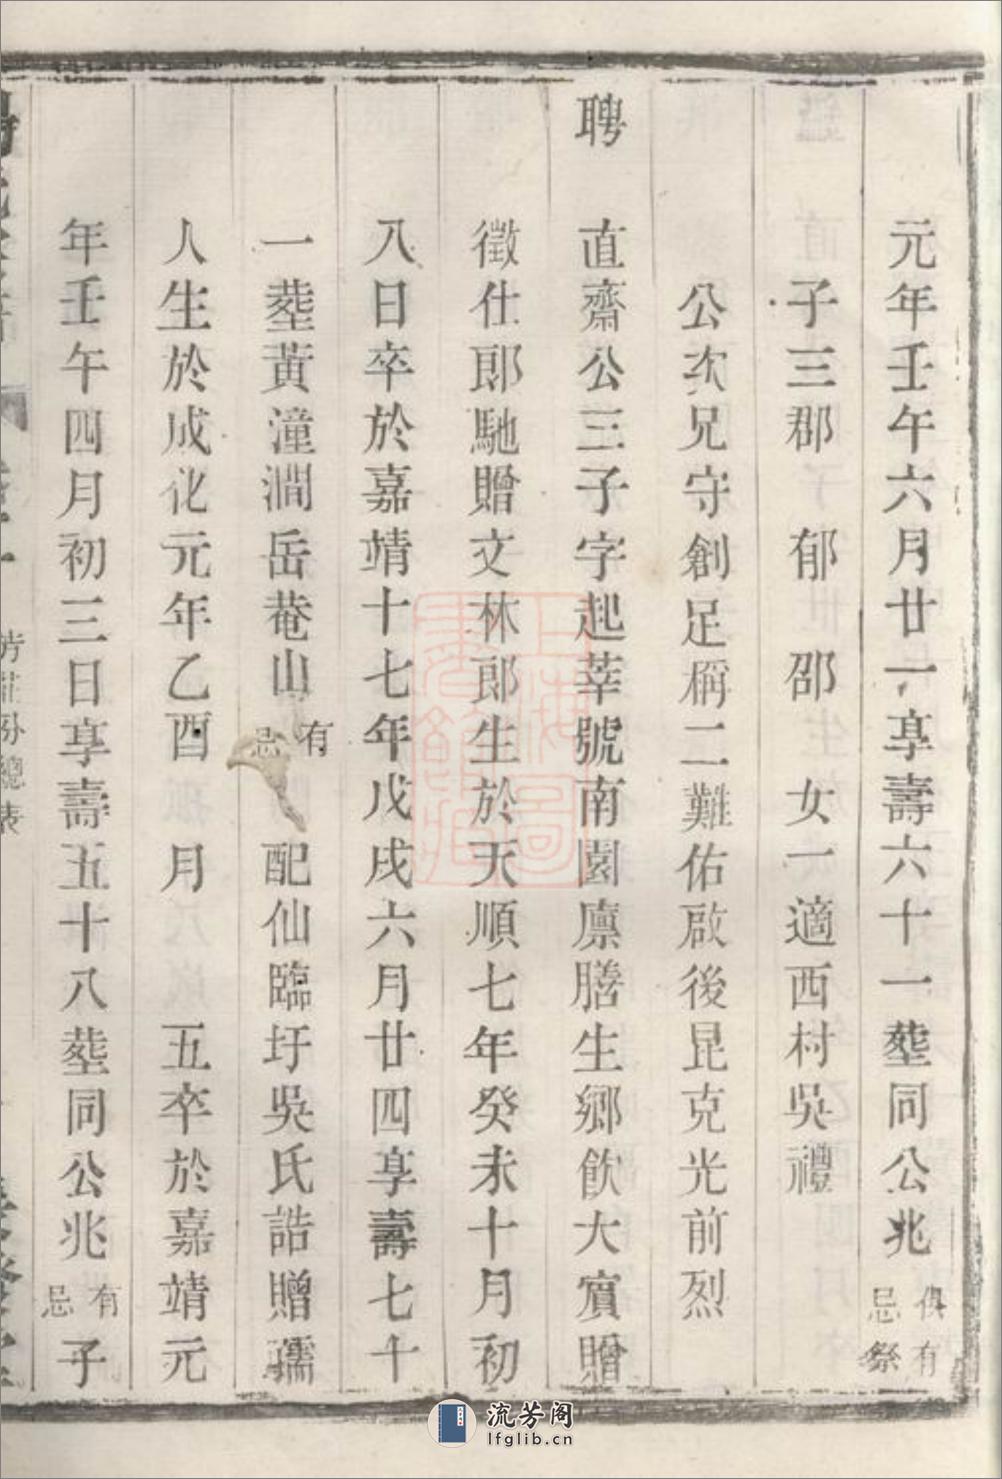 元年壬午六月廿一享壽六十一塟同公兆俱有忌祭
子三郡　郁　邵　女一適西村吳禮
公次兄守創足稱二難佑啟後昆克光前烈
聘　直齋公三子字起莘號南園廩膳生鄉飲大賔贈
徵仕郎馳贈文林郎生於天順七年癸未十月初
八日卒於嘉靖十七年戊戌六月廿四享壽七十
一塟黃潼澗岳菴山有忌　配仙臨圩吳氏誥贈孺
人生於成化元年乙酉　月　五卒於嘉靖元
年壬午四月初三日享壽五十八塟同公兆有忌子
上海圖書館藏
流芳阁
lfglib.cn